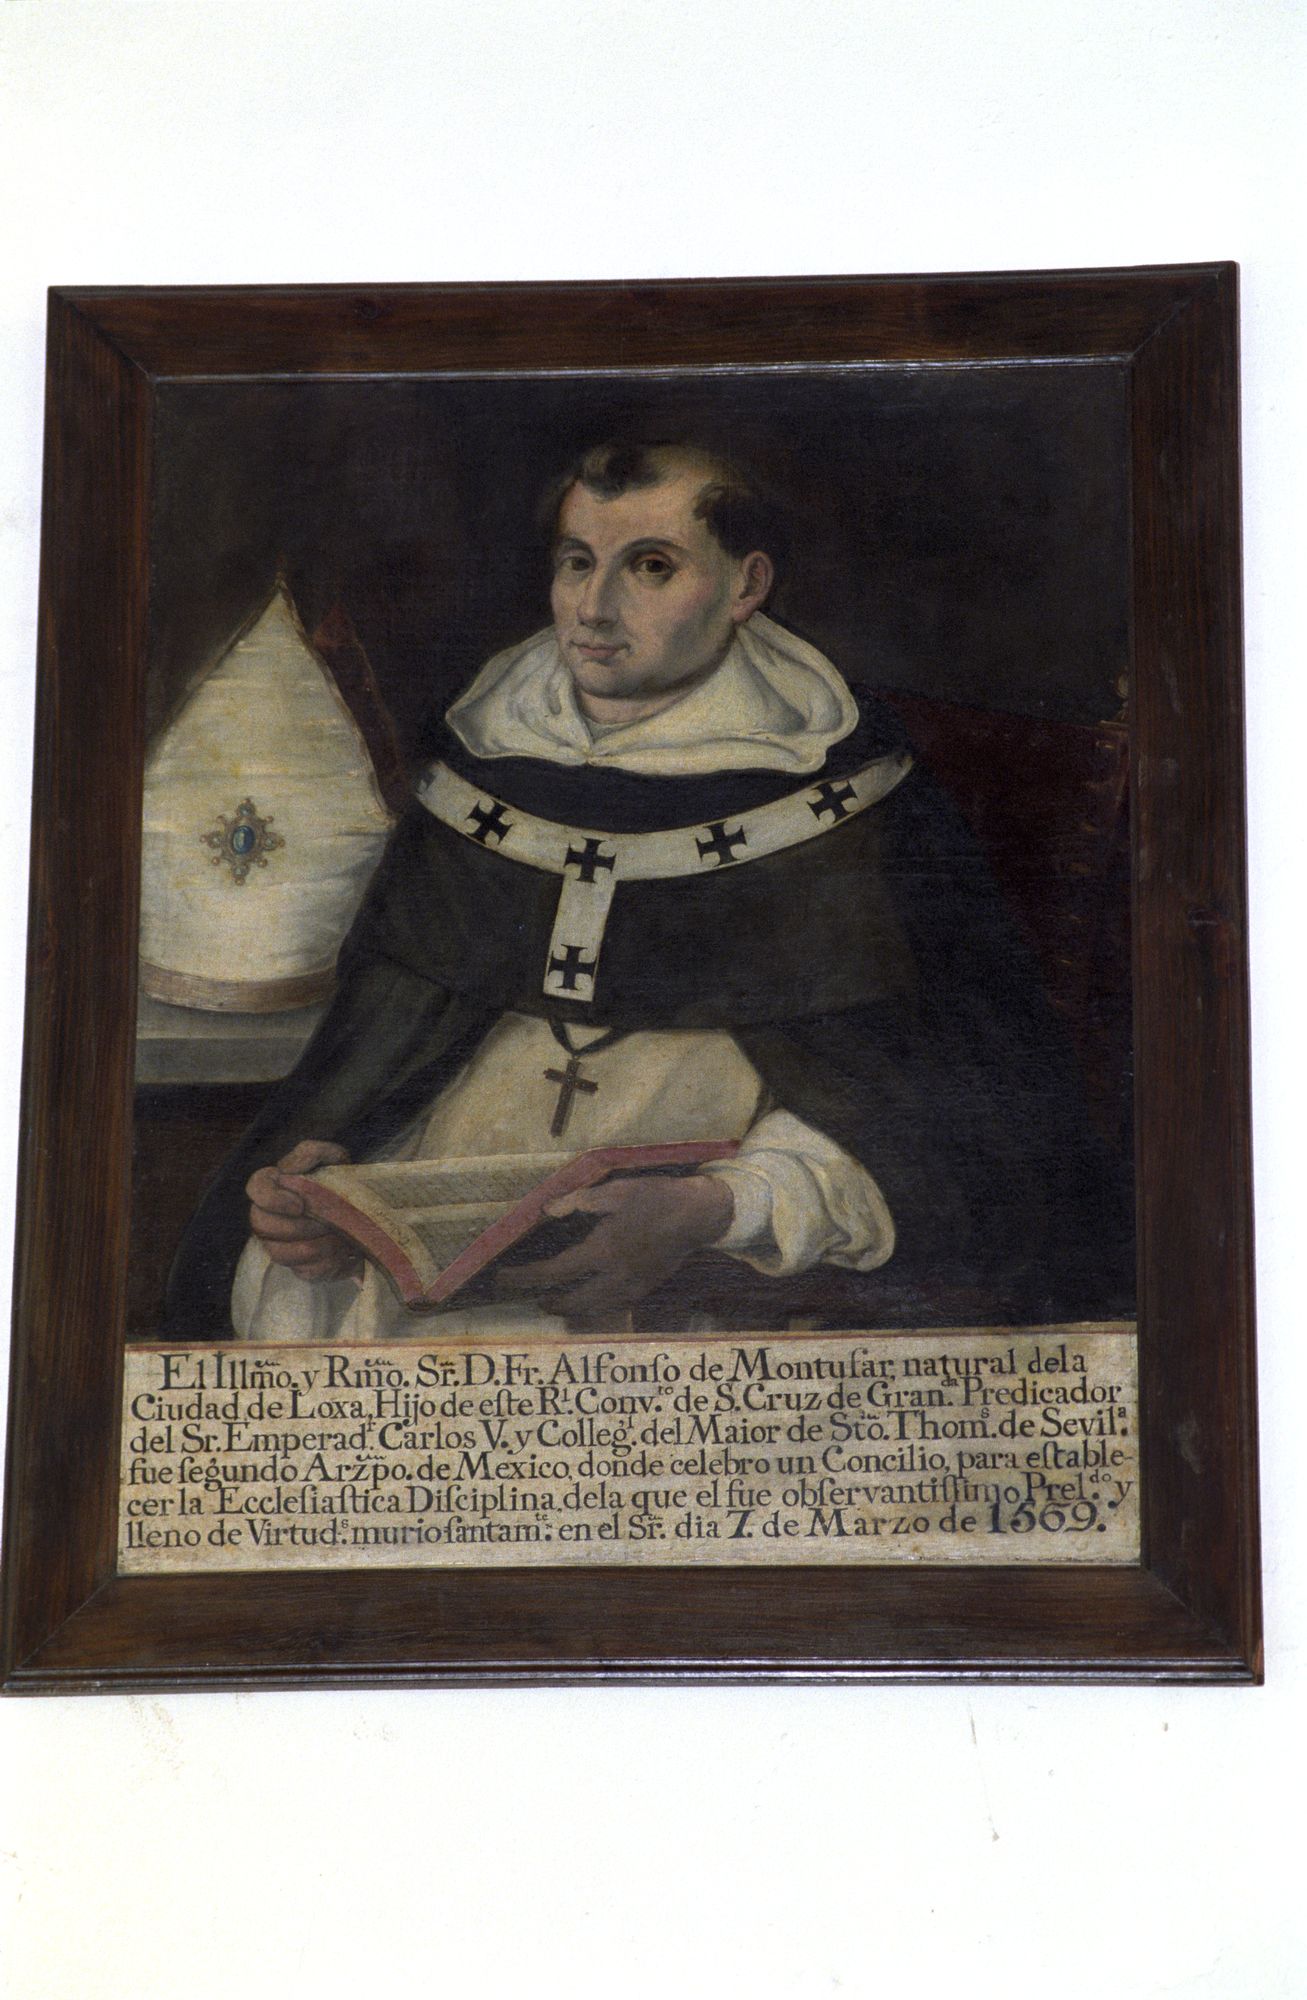 El Illm̃o. y Rm̃o. Sr̃. D. Fr. Alfonſo de Montuſar, natural dela
Ciudad de Loxa, Hijo de eſte Rˡ. Conv.ᵗᵒ de S. Cruz de Gran.ᵈᵃ Predicador
del Sr. Emperadʳ. Carlos V. y Collegˡ. del Maior de Stõ. Thomˢ. de Sevilᵃ.
fue ſegundo Arz̃po. de Mexico, donde celebro un Concilio, para eſtable-
cer la Eccleſiaſtica Diſciplina, dela que el fue obſervantiſſimo Prel.ᵈᵒ y
lleno de Virtudˢ. murio ſantamᵗᵉ. en el Sr̃. dia 7. de Marzo de 1569.